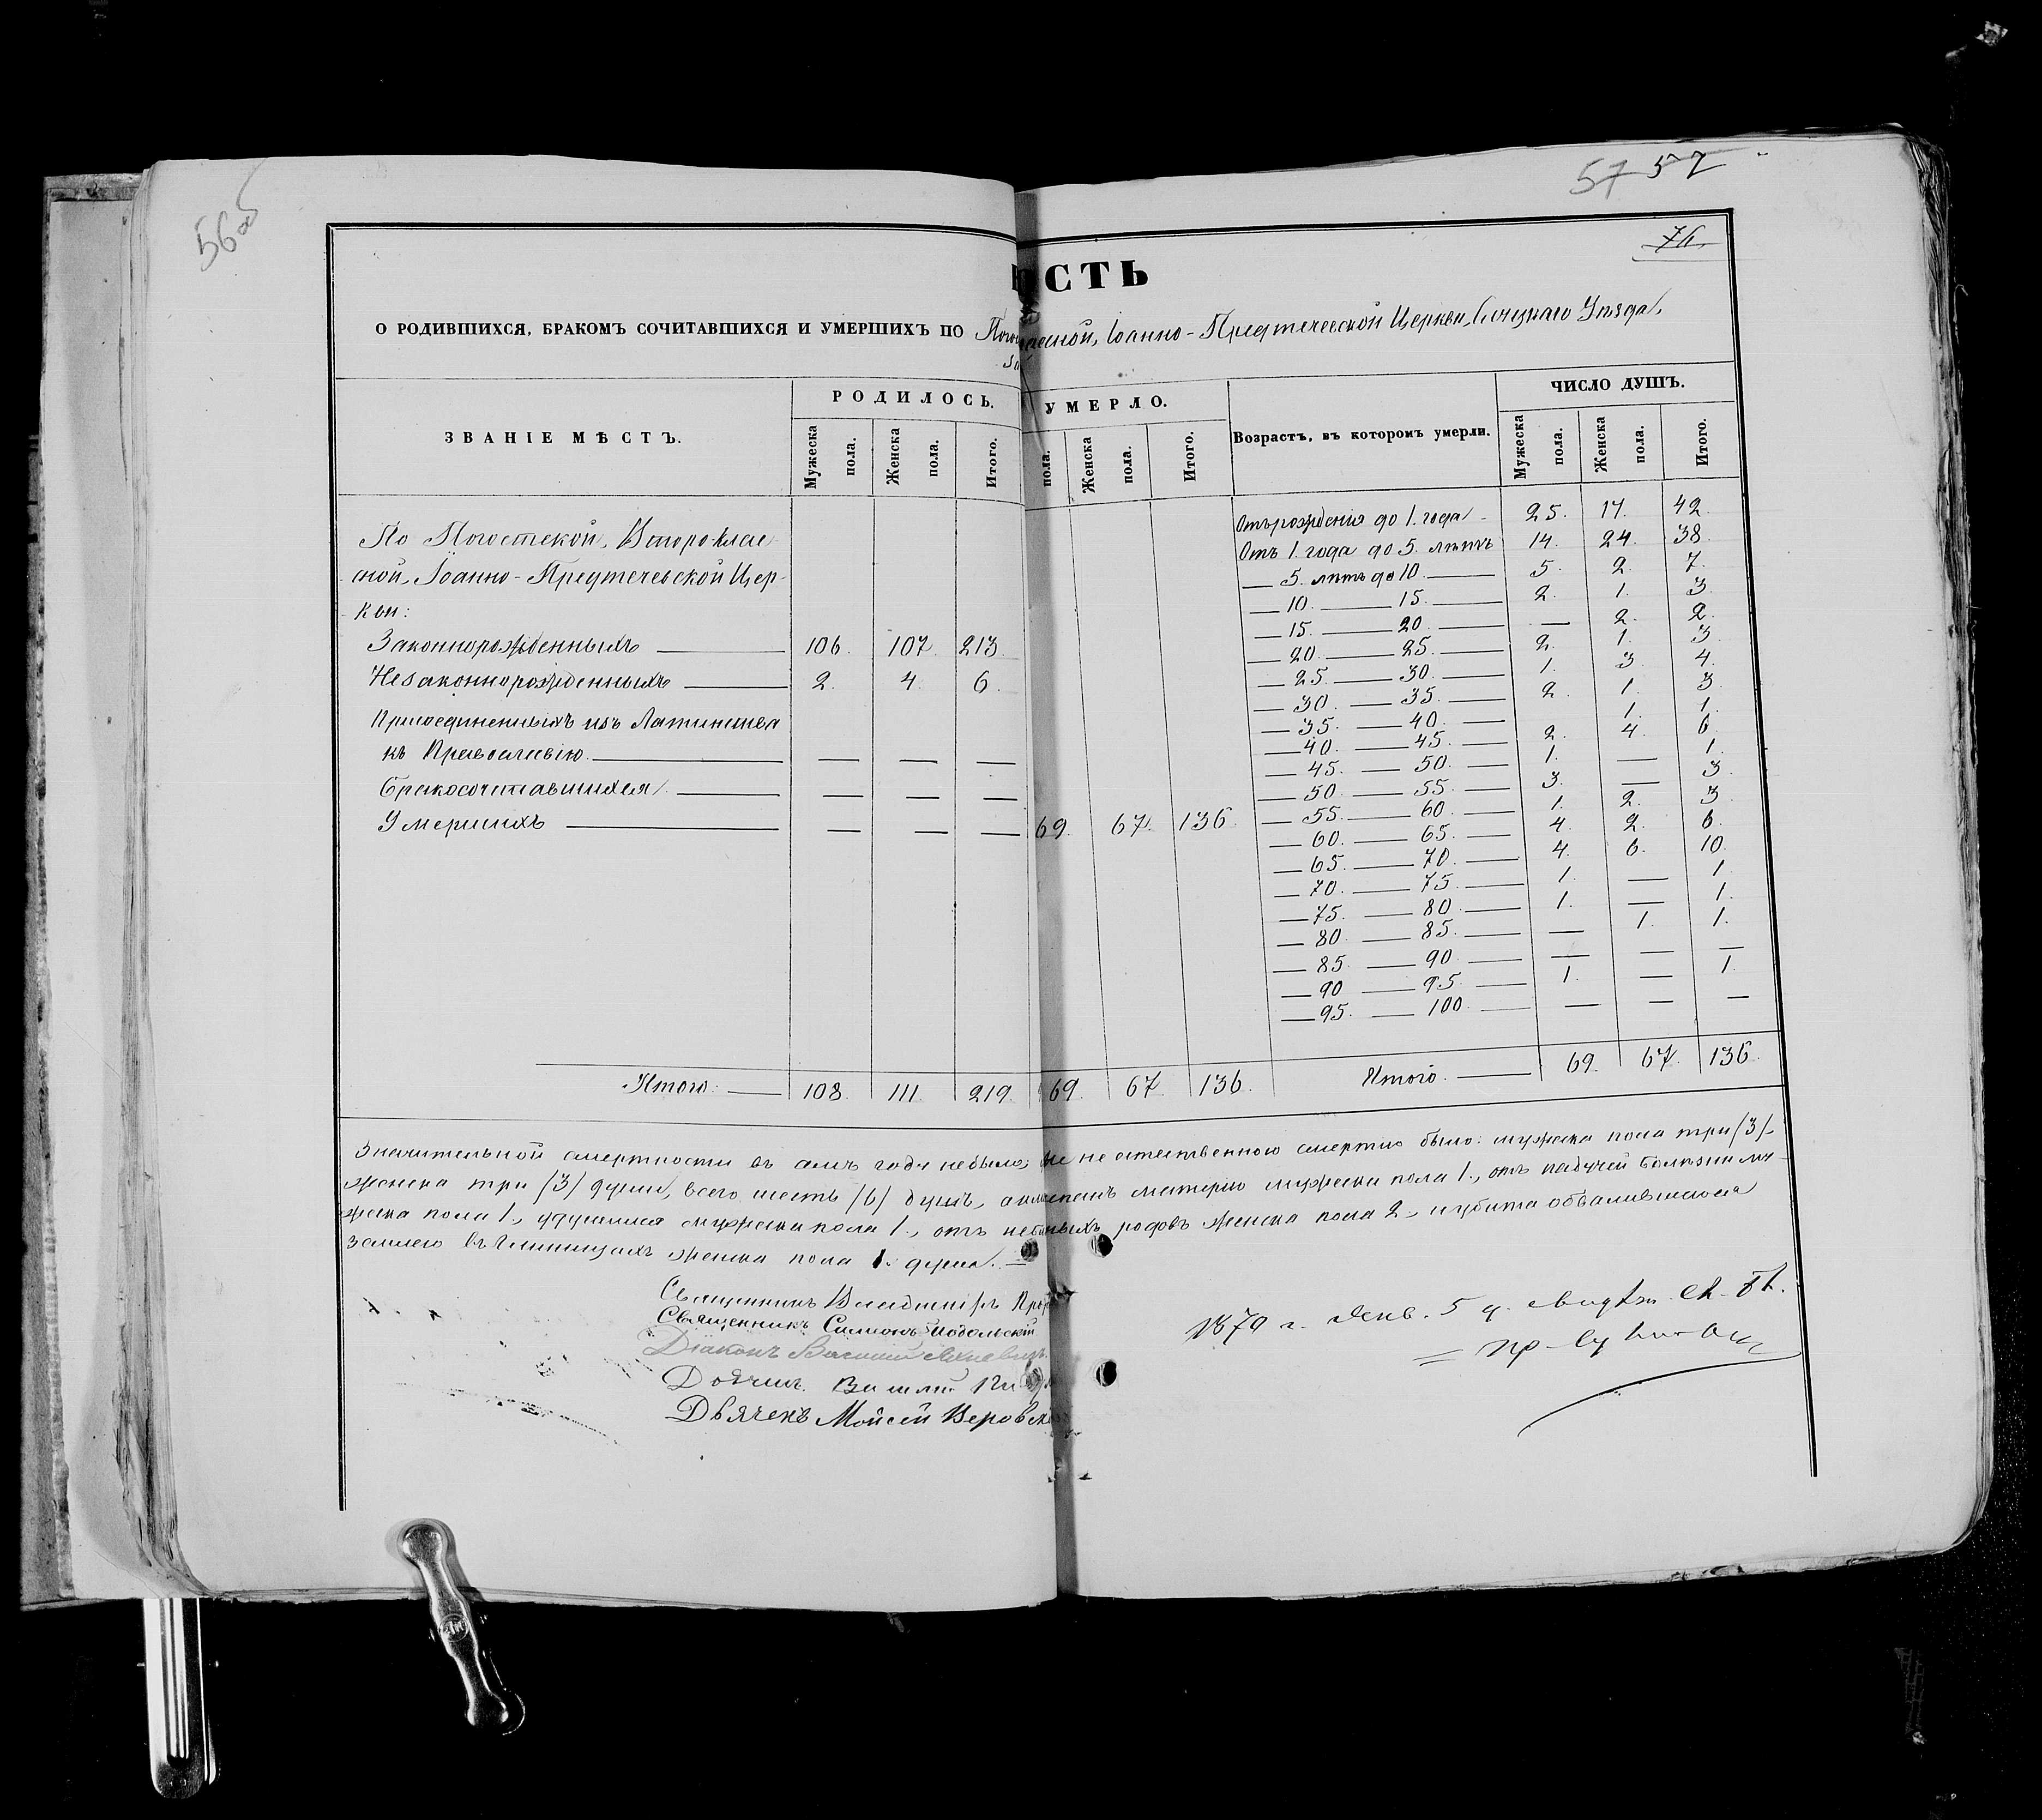 56об
57 57
74.
ОСТЬ
О РОДИВШИХСЯ, БРАКОМЪ СОЧИТАВШИХСЯ И УМЕРШИХЪ ПО классной, Іоанно-Предтечевской Церкви, Слуцкаго Уѣзда,
за
ЗВАНІЕ МѢСТЪ.
РОДИЛОСЬ.
Мужеска пола.
Женска пола.
Итого.
УМЕРЛО.
пола.
Женска пола.
Итого.
Возрастъ, въ которомъ умерли.
ЧИСЛО ДУШЪ.
Мужеска пола.
Женска пола.
Итого.
По Погостской, Второклас-
сной, Іоанно-Предтечевской Цер-
кви:
Законнорожденныхъ — 106. 107. 213.
Незаконнорожденныхъ — 2. 4. 6.
Присоединенныхъ изъ Латинства
къ Православію. — — — —
Бракосочитавшихся. — — — —
Умершихъ — — — — 69. 67. 136.
Отъ рожденія до 1. года — 25. 17. 42.
Отъ 1. года до 5. лѣтъ 14. 24. 38.
— 5. лѣтъ до 10. — 5. 2. 7.
— 10. — 15. — 2. 1. 3.
— 15. — 20. — — 2. 2.
— 20. — 25. — 2. 1. 3.
— 25. — 30. — 1. 3. 4.
— 30. — 35. — 2. 1. 3.
— 35. — 40. — 1. 1.
— 40. — 45. — 2. 4. 6.
— 45. — 50. — 1. — 1.
— 50. — 55. — 3. — 3.
— 55. — 60. — 1. 2. 3.
— 60. — 65. — 4. 2. 6.
— 65. — 70. — 4. 6. 10.
— 70. — 75. — 1. — 1.
— 75. — 80. — 1. — 1.
— 80. — 85. — — 1. 1.
— 85. — 90. — — — —
— 90 — 95. — 1. — 1.
— 95. — 100. — — — —
Итого: — 108. 111. 219. 69. 67. 136.
Итого. — 69. 67. 136.
Значительной смертности въ семъ году небыло; не естественною смертію было: мужеска пола три /3/-
женска три /3/ души, всего шесть /6/ душъ, матерію мужеска пола 1., отъ падучей болѣзни му-
жеска пола 1., удушился мужеска пола 1., отъ родовъ женска пола 2., и убита обвалившеюся
землею въ глинищахъ женска пола 1. душа. —
Священникъ Владиміръ
Священникъ Симеонъ Подольскій
Діаконъ Василій
Дьячекъ Моѵсей
1879 г. Янв. 5 д.